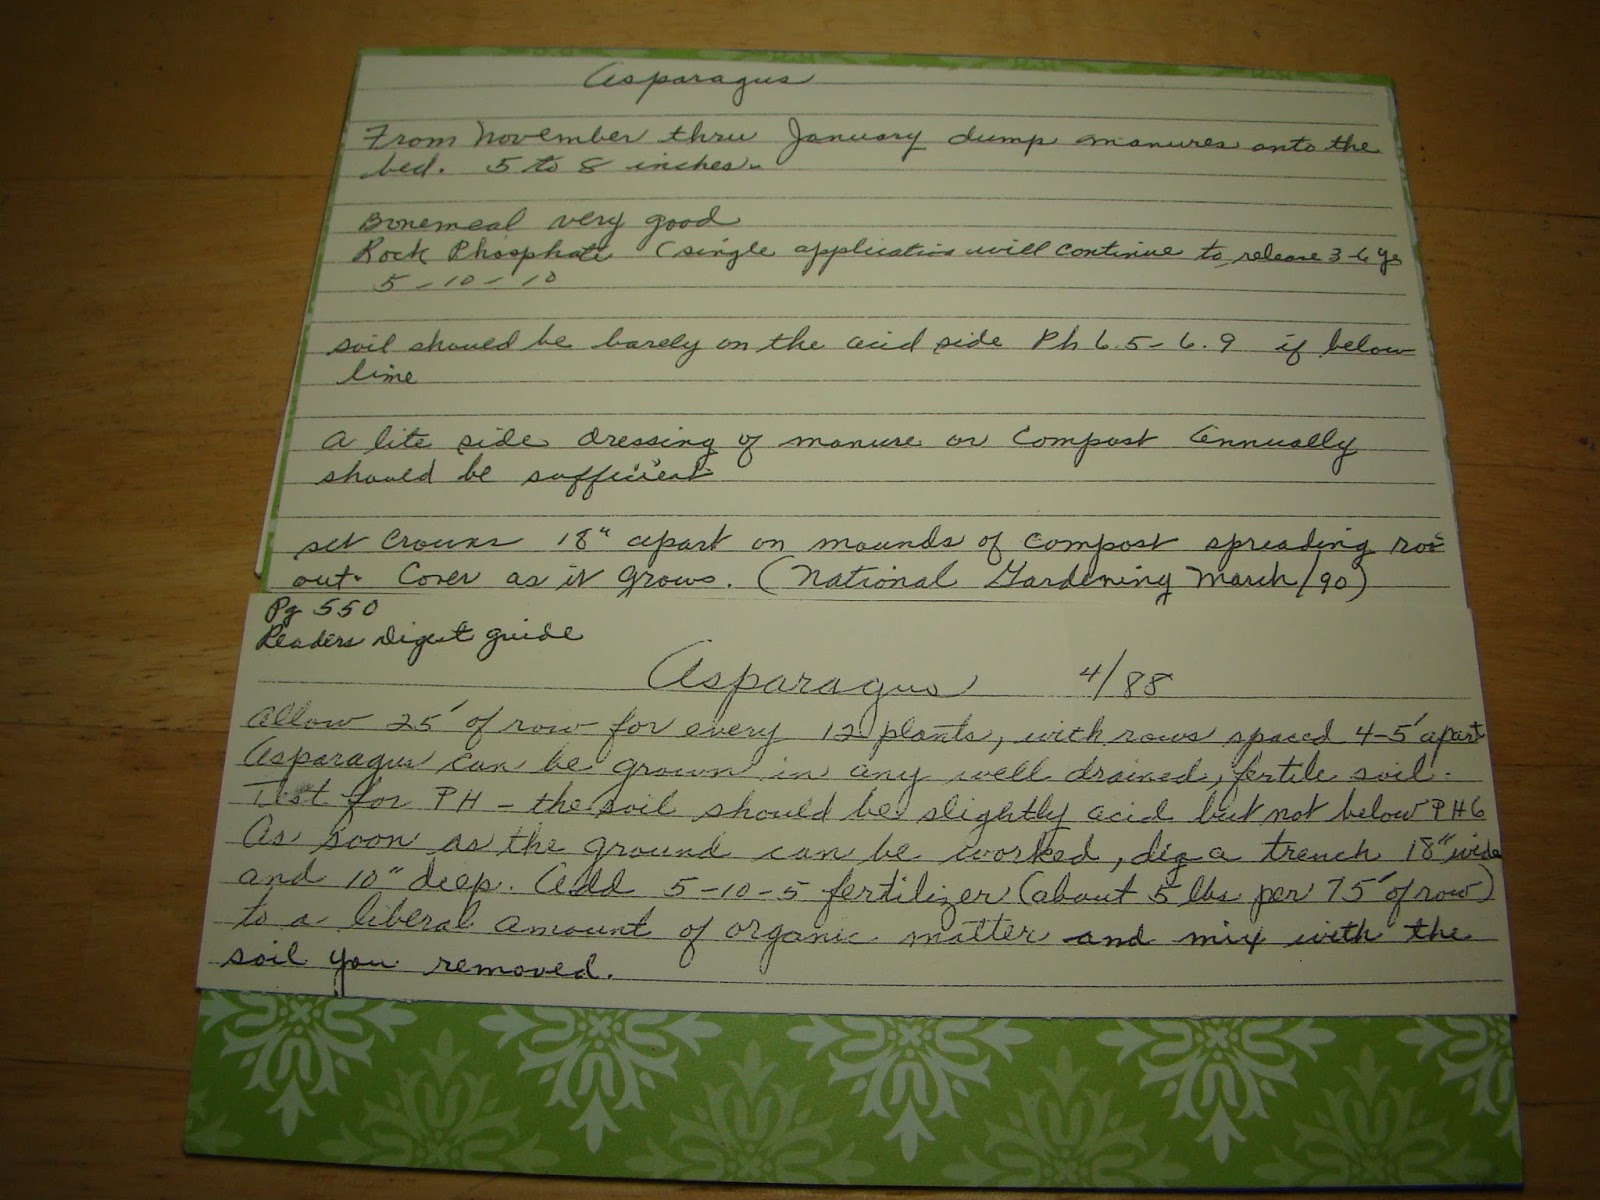 Asparagus
From November thru January dump manures onto the
bed. 5 to 8 inches.
Bonemeal very good
Rock Phosphate (single application will continue to release 3-6 ys
5-10-10
soil should be barely on the acid side Ph 6.5-6.9 if below
lime
a lite side dressing of manure or compost annually
should be sufficient
set crowns 18" apart on mounds of compost spreading
out. Cover as it grows. (National Gardening March/90)
Pg 550
Readers Digest guide
Asparagus 4/88
allow 25' of row for every 12 plants, with rows spaced 4-5' apart
Asparagus can be grown in any well drained, fertile soil.
Test for PH - the soil should be slightly acid but not below PH6
As soon as the ground can be worked, dig a trench 18" wide
and 10" deep. Add 5-10-5 fertilizer (about 5 lbs per 75' of row)
to a liberal amount of organic matter and mix with the
soil you removed.